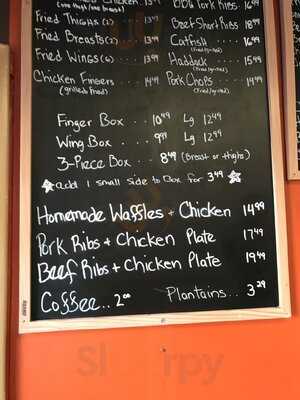 Fried Chicken 13⁴⁹
(one thigh/one breast)
Fried Thighs (2) 13⁴⁹
Fried Breasts (2) ... 13⁴⁹
Fried Wings (6) ... 13⁴⁹
Chicken Fingers .... 14⁴⁹
(grilled/fried)
BBQ Pork Ribs . 16⁴⁹
Beef Short Ribs 18⁴⁹
Catfish .... 16⁴⁹
(fried/grilled)
Haddock .... 15⁴⁹
(fried/grilled)
Pork Chops .... 14⁴⁹
(fried/grilled)
Finger Box ... 10⁴⁹ Lg 12⁹⁹
Wing Box ... 9⁹⁹ Lg 12⁹⁹
3-Piece Box ... 8⁴⁹ (Breast or thighs)
add 1 small side to Box for 3⁴⁹
Homemade Waffles + Chicken 14⁹⁹
Pork Ribs + Chicken Plate 17⁴⁹
Beef Ribs + Chicken Plate 19⁴⁹
Coffee.. 2⁰⁰ Plantains... 3²⁹